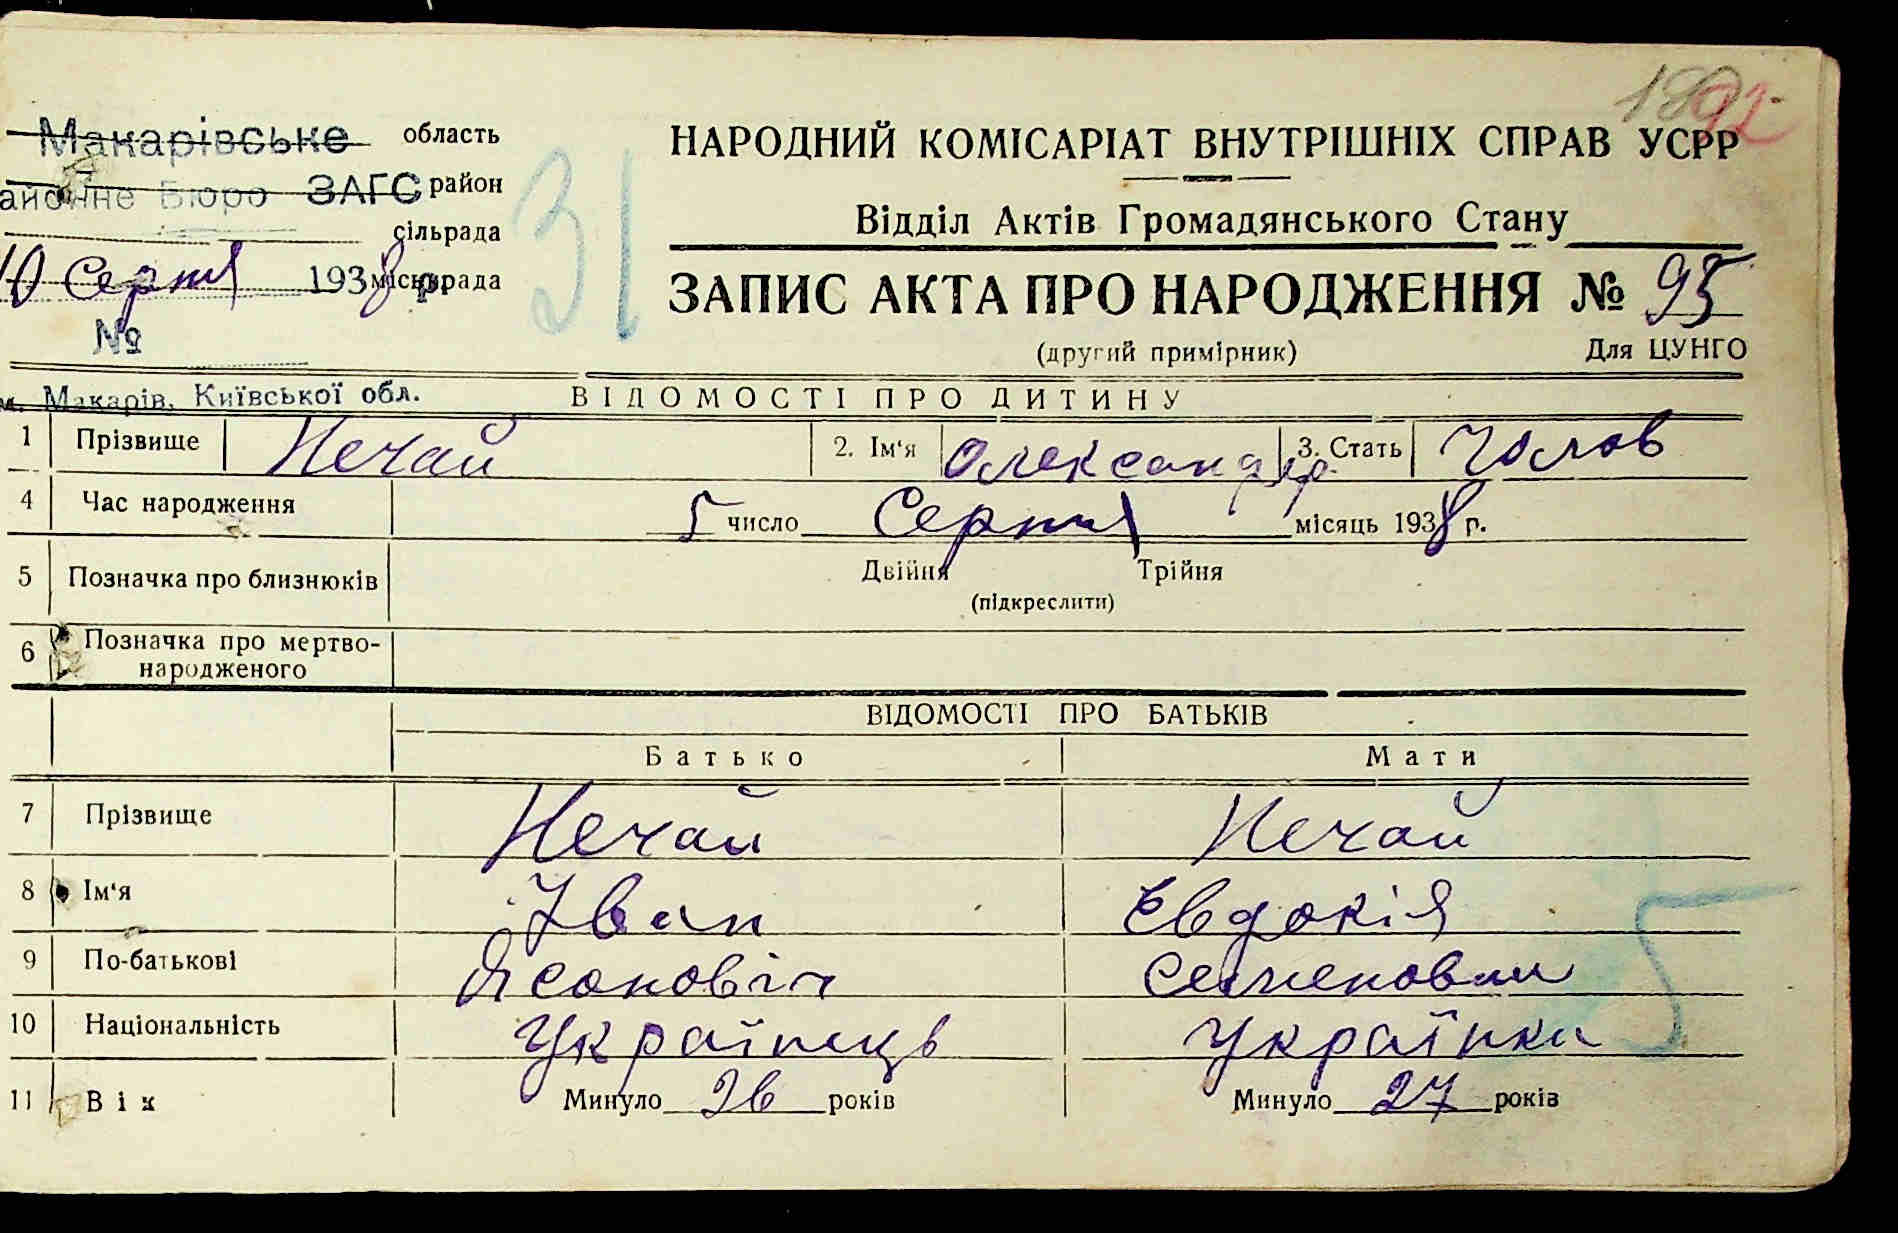 Макарівське область
айонне Бюро ЗАГС район
сільрада
10 Серпня 1938 р. міськрада
№
м. Макарів, Київської обл.
31
НАРОДНИЙ КОМІСАРІАТ ВНУТРІШНІХ СПРАВ УСРР
Відділ Актів Громадянського Стану
ЗАПИС АКТА ПРО НАРОДЖЕННЯ № 95
(другий примірник) Для ЦУНГО
ВІДОМОСТІ ПРО ДИТИНУ
1 Прізвище Нечай 2. Ім'я Олександр. 3. Стать Чолов
4 Час народження 5 число Серпня місяць 1938 р.
5 Позначка про близнюків Двійня Трійня
(підкреслити)
6 Позначка про мертво-
народженого
ВІДОМОСТІ ПРО БАТЬКІВ
Батько Мати
7 Прізвище Нечай Нечай
8 Ім'я Іван Евдокія
9 По-батькові Ясоновіч Семеновна
10 Національність Українець Українка
5
11 Вік Минуло 26 років Минуло 27 років